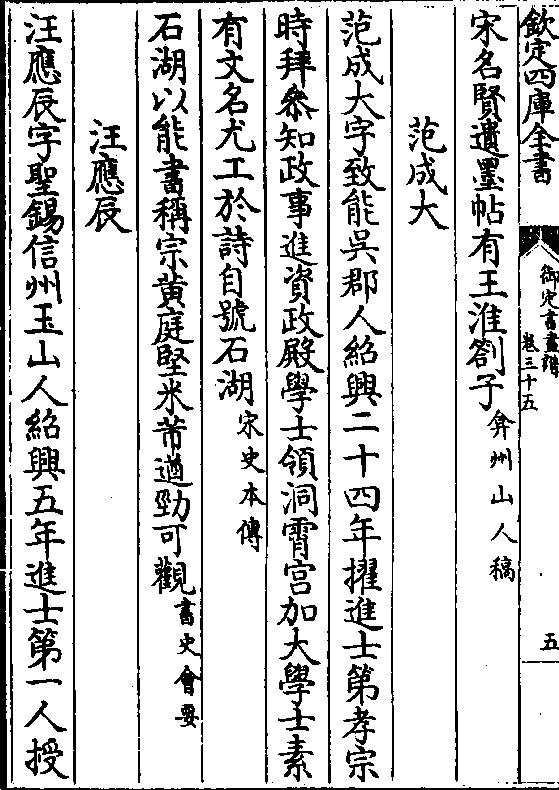 欽定四庫全書
御定書畫譜
卷三十五
五
宋名賢遺墨帖有王淮劄子弇州山人稿
范成大
范成大字致能吳郡人紹興二十四年擢進士第孝宗
時拜參知政事進資政殿學士領洞霄宮加大學士素
有文名尤工於詩自號石湖宋史本傳
石湖以能書稱宗黃庭堅米芾遒勁可觀書史會要
汪應辰
汪應辰字聖錫信州玉山人紹興五年進士第一人授